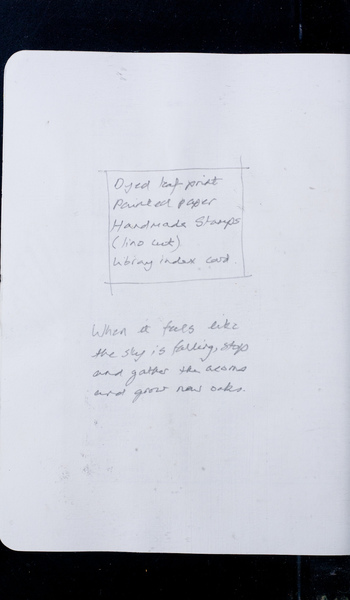 Dyed leaf print
Painted paper
Handmade Stamps
(lino cut)
Library index card
When it feels like
the sky is falling, stop
and gather the acorns
and grow new oaks.